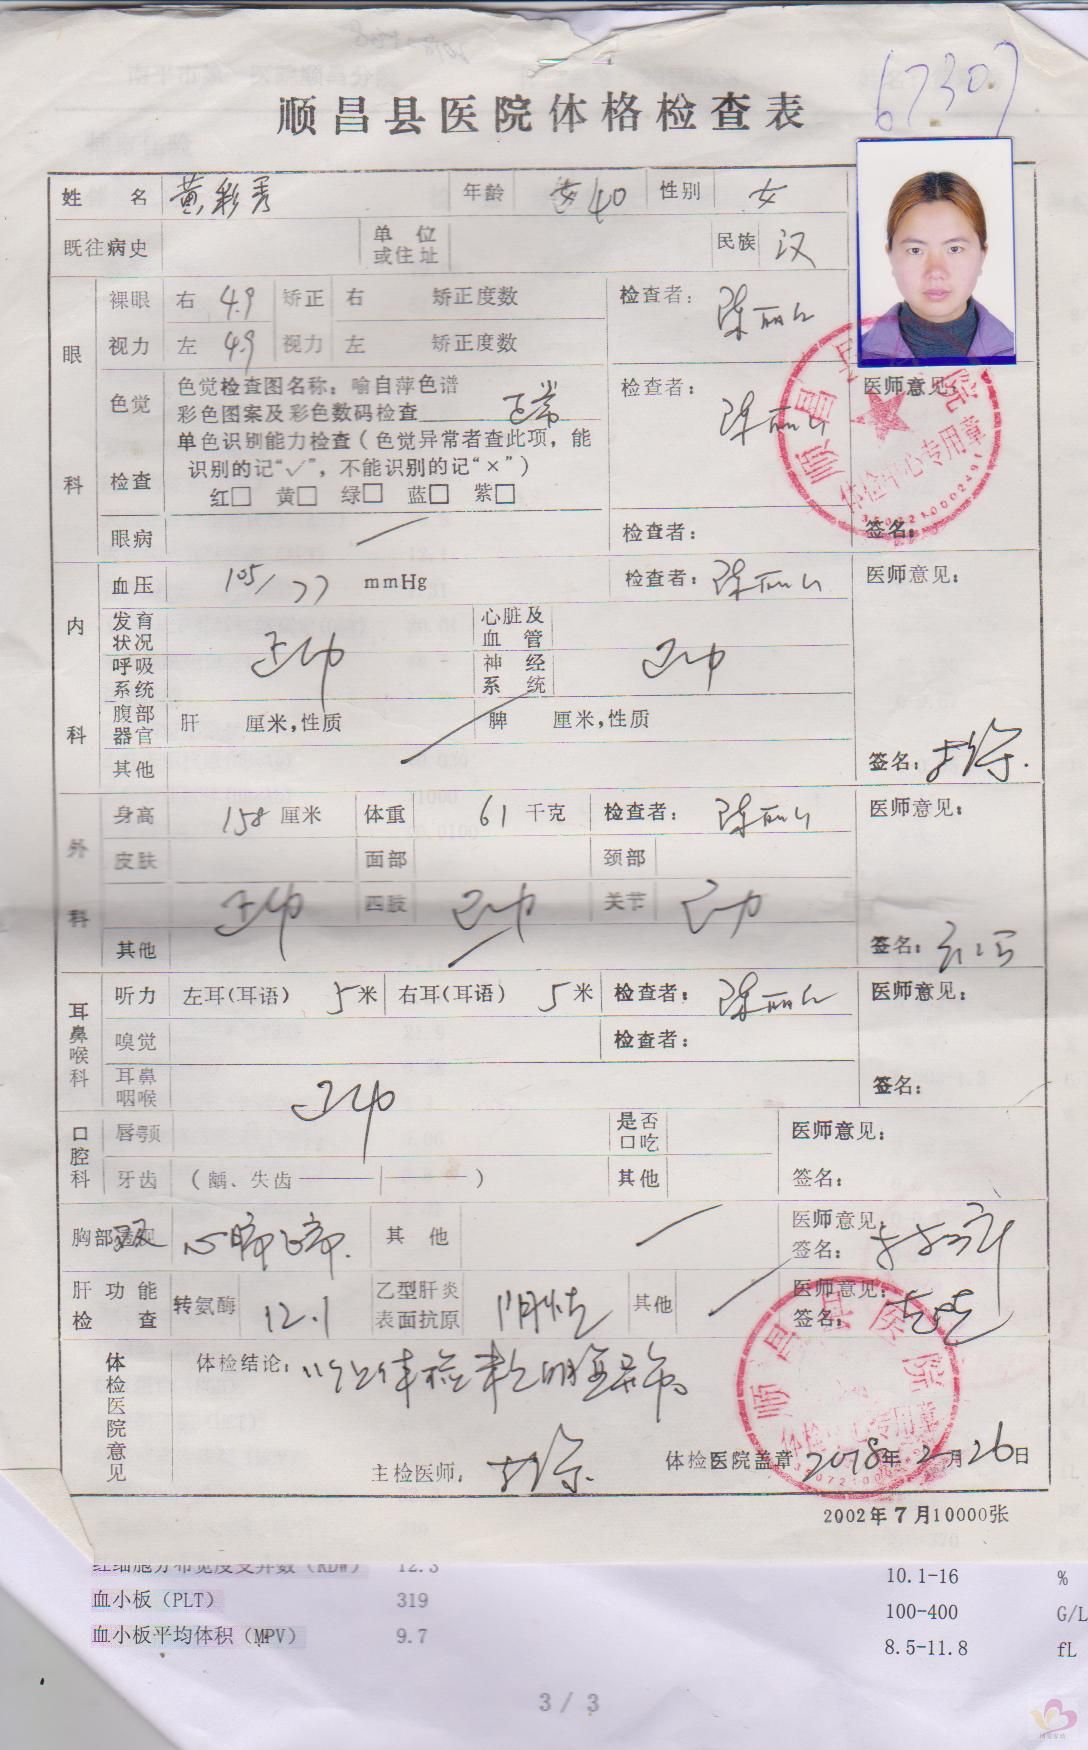 67307
顺昌县医院体格检查表
姓 名 黄彩秀 年龄 40 性别 女
既往病史 单位或住址 民族 汉
眼科
裸眼视力 右 4.9 矫正视力 右 矫正度数 检查者：
左 4.9 左 矫正度数
色觉检查 色觉检查图名称：喻自萍色谱 检查者： 医师意见：
彩色图案及彩色数码检查 正常
单色识别能力检查（色觉异常者查此项，能
识别的记“✓”，不能识别的记“×”）
红□ 黄□ 绿□ 蓝□ 紫□
眼病 检查者： 签名：
顺昌县医院
体检中心专用章
内科
血压 105/77 mmHg 检查者： 医师意见：
发育状况 心脏及血管
呼吸系统 神经系统
腹部器官 肝 厘米，性质 脾 厘米，性质
其他 签名：
外科
身高 158 厘米 体重 61 千克 检查者： 医师意见：
皮肤 面部 颈部
四肢 关节
其他 签名：
耳鼻喉科
听力 左耳（耳语） 5 米 右耳（耳语） 5 米 检查者： 医师意见：
嗅觉 检查者：
耳鼻咽喉 签名：
口腔科
唇颚 是否口吃 医师意见：
牙齿 （龋、失齿 ） 其他 签名：
胸部 其他 医师意见：
签名：
肝功能检查 转氨酶 12.1 乙型肝炎表面抗原 阴性 其他 医师意见：
签名：
体检医院意见 体检结论：
主检医师： 体检医院盖章 2018年2月26日
顺昌县医院
体检中心专用章
2002年7月10000张
红细胞分布宽度变异数（RDW） 12.3 10.1-16 %
血小板（PLT） 319 100-400 G/L
血小板平均体积（MPV） 9.7 8.5-11.8 fL
3 / 3